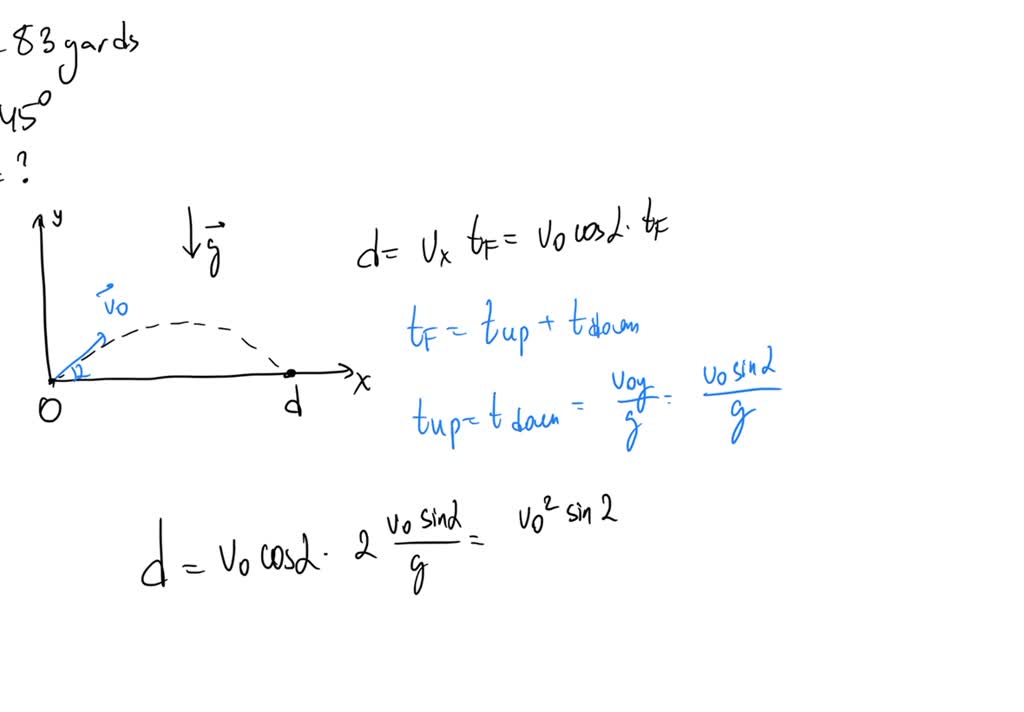 - 83 yards
45°
= ?
y
g
d = vx tF = v0 cosα · tF
v0
tF = tup + tdown
α
x
O
d
tup = tdown = v0y/g = v0 sinα/g
d = v0 cosα · 2 v0 sinα/g = v0² sin 2